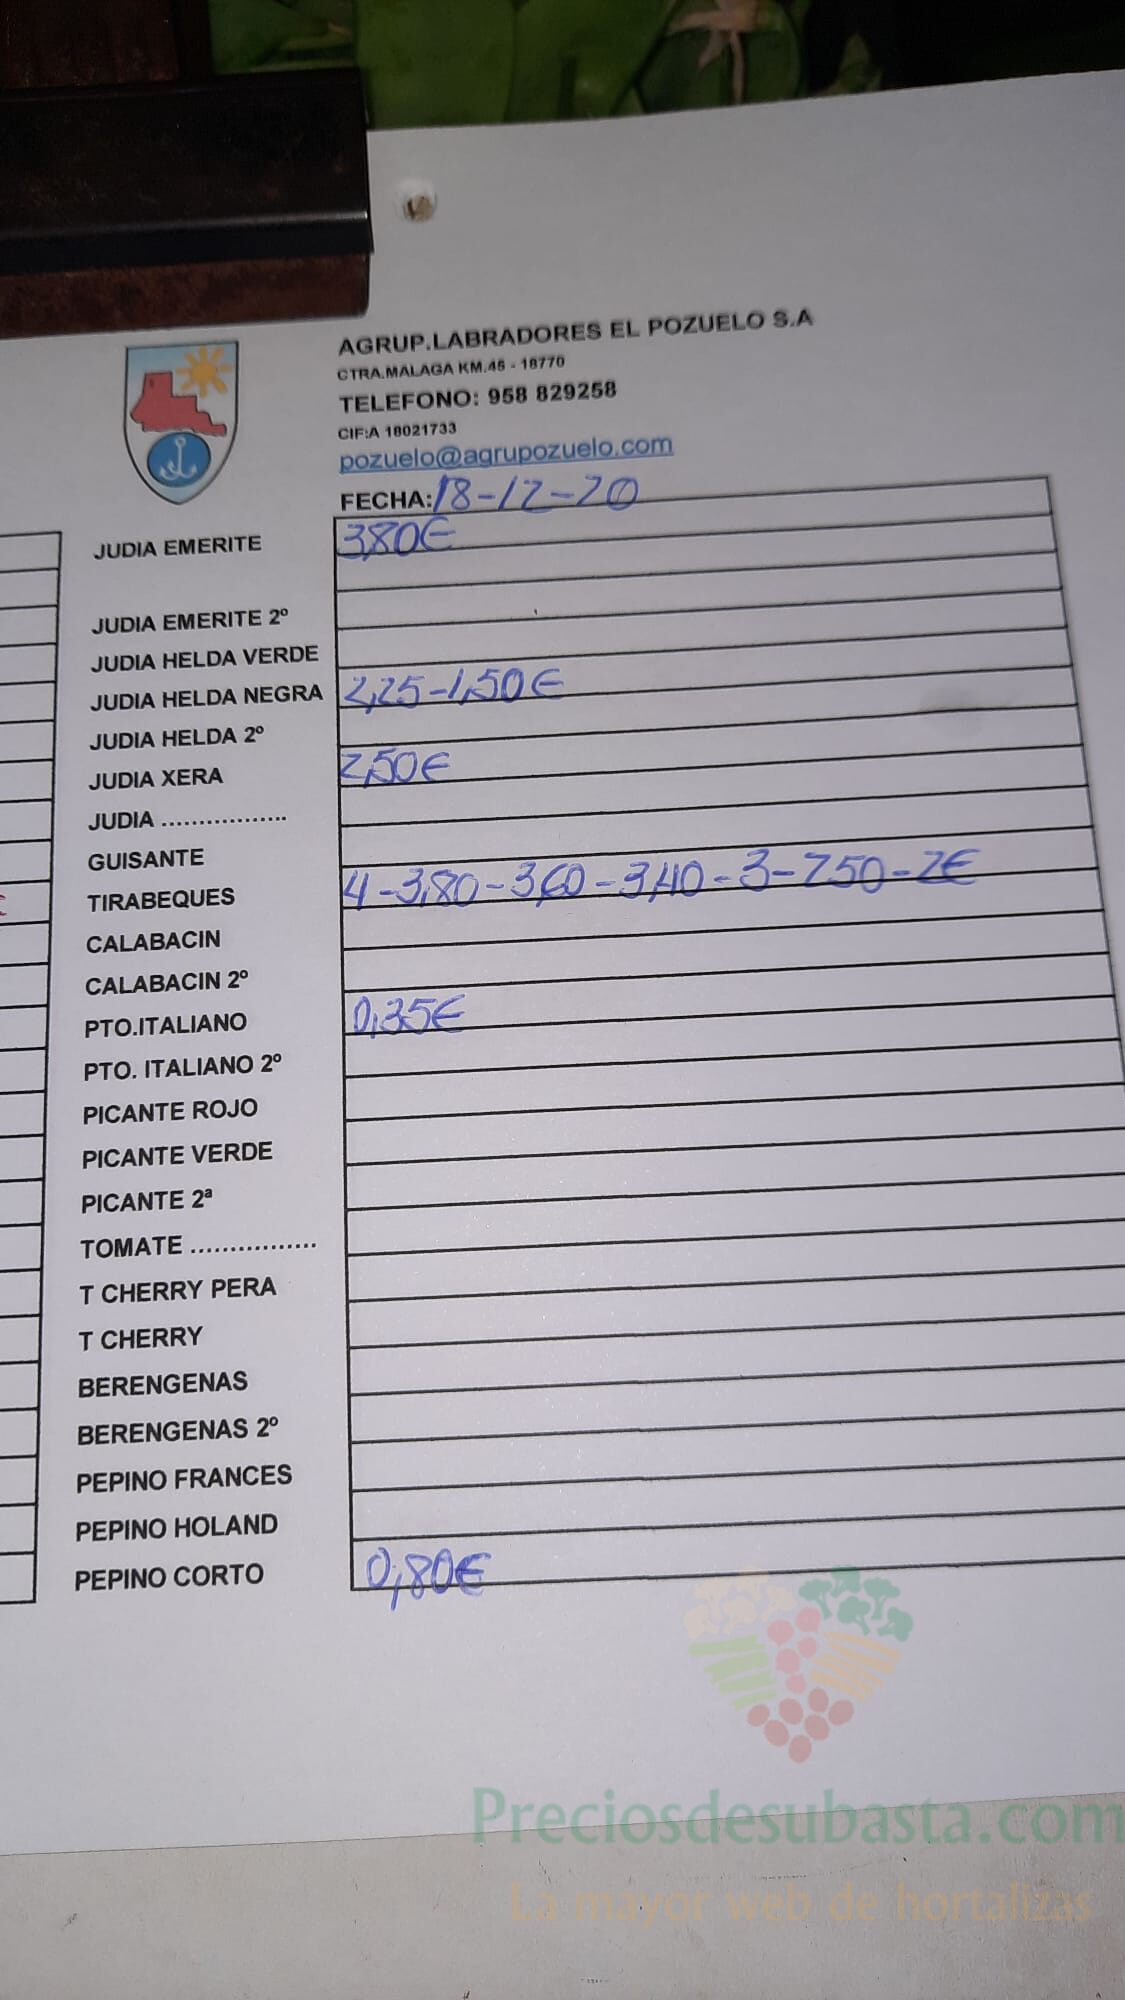 AGRUP.LABRADORES EL POZUELO S.A
CTRA.MALAGA KM.45 - 18770
TELEFONO: 958 829258
CIF:A 18021733
pozuelo@agrupozuelo.com
FECHA: 18-12-20
JUDIA EMERITE 3,80€
JUDIA EMERITE 2º
JUDIA HELDA VERDE
JUDIA HELDA NEGRA 2,25-1,50€
JUDIA HELDA 2º
JUDIA XERA 2,50€
JUDIA .................
GUISANTE
TIRABEQUES 4-3,80-3,60-3,40-3-2,50-2€
CALABACIN
CALABACIN 2º
PTO.ITALIANO 0,35€
PTO. ITALIANO 2º
PICANTE ROJO
PICANTE VERDE
PICANTE 2ª
TOMATE .................
T CHERRY PERA
T CHERRY
BERENGENAS
BERENGENAS 2º
PEPINO FRANCES
PEPINO HOLAND
PEPINO CORTO 0,80€
Preciosdesubasta.com
La mayor web de hortalizas